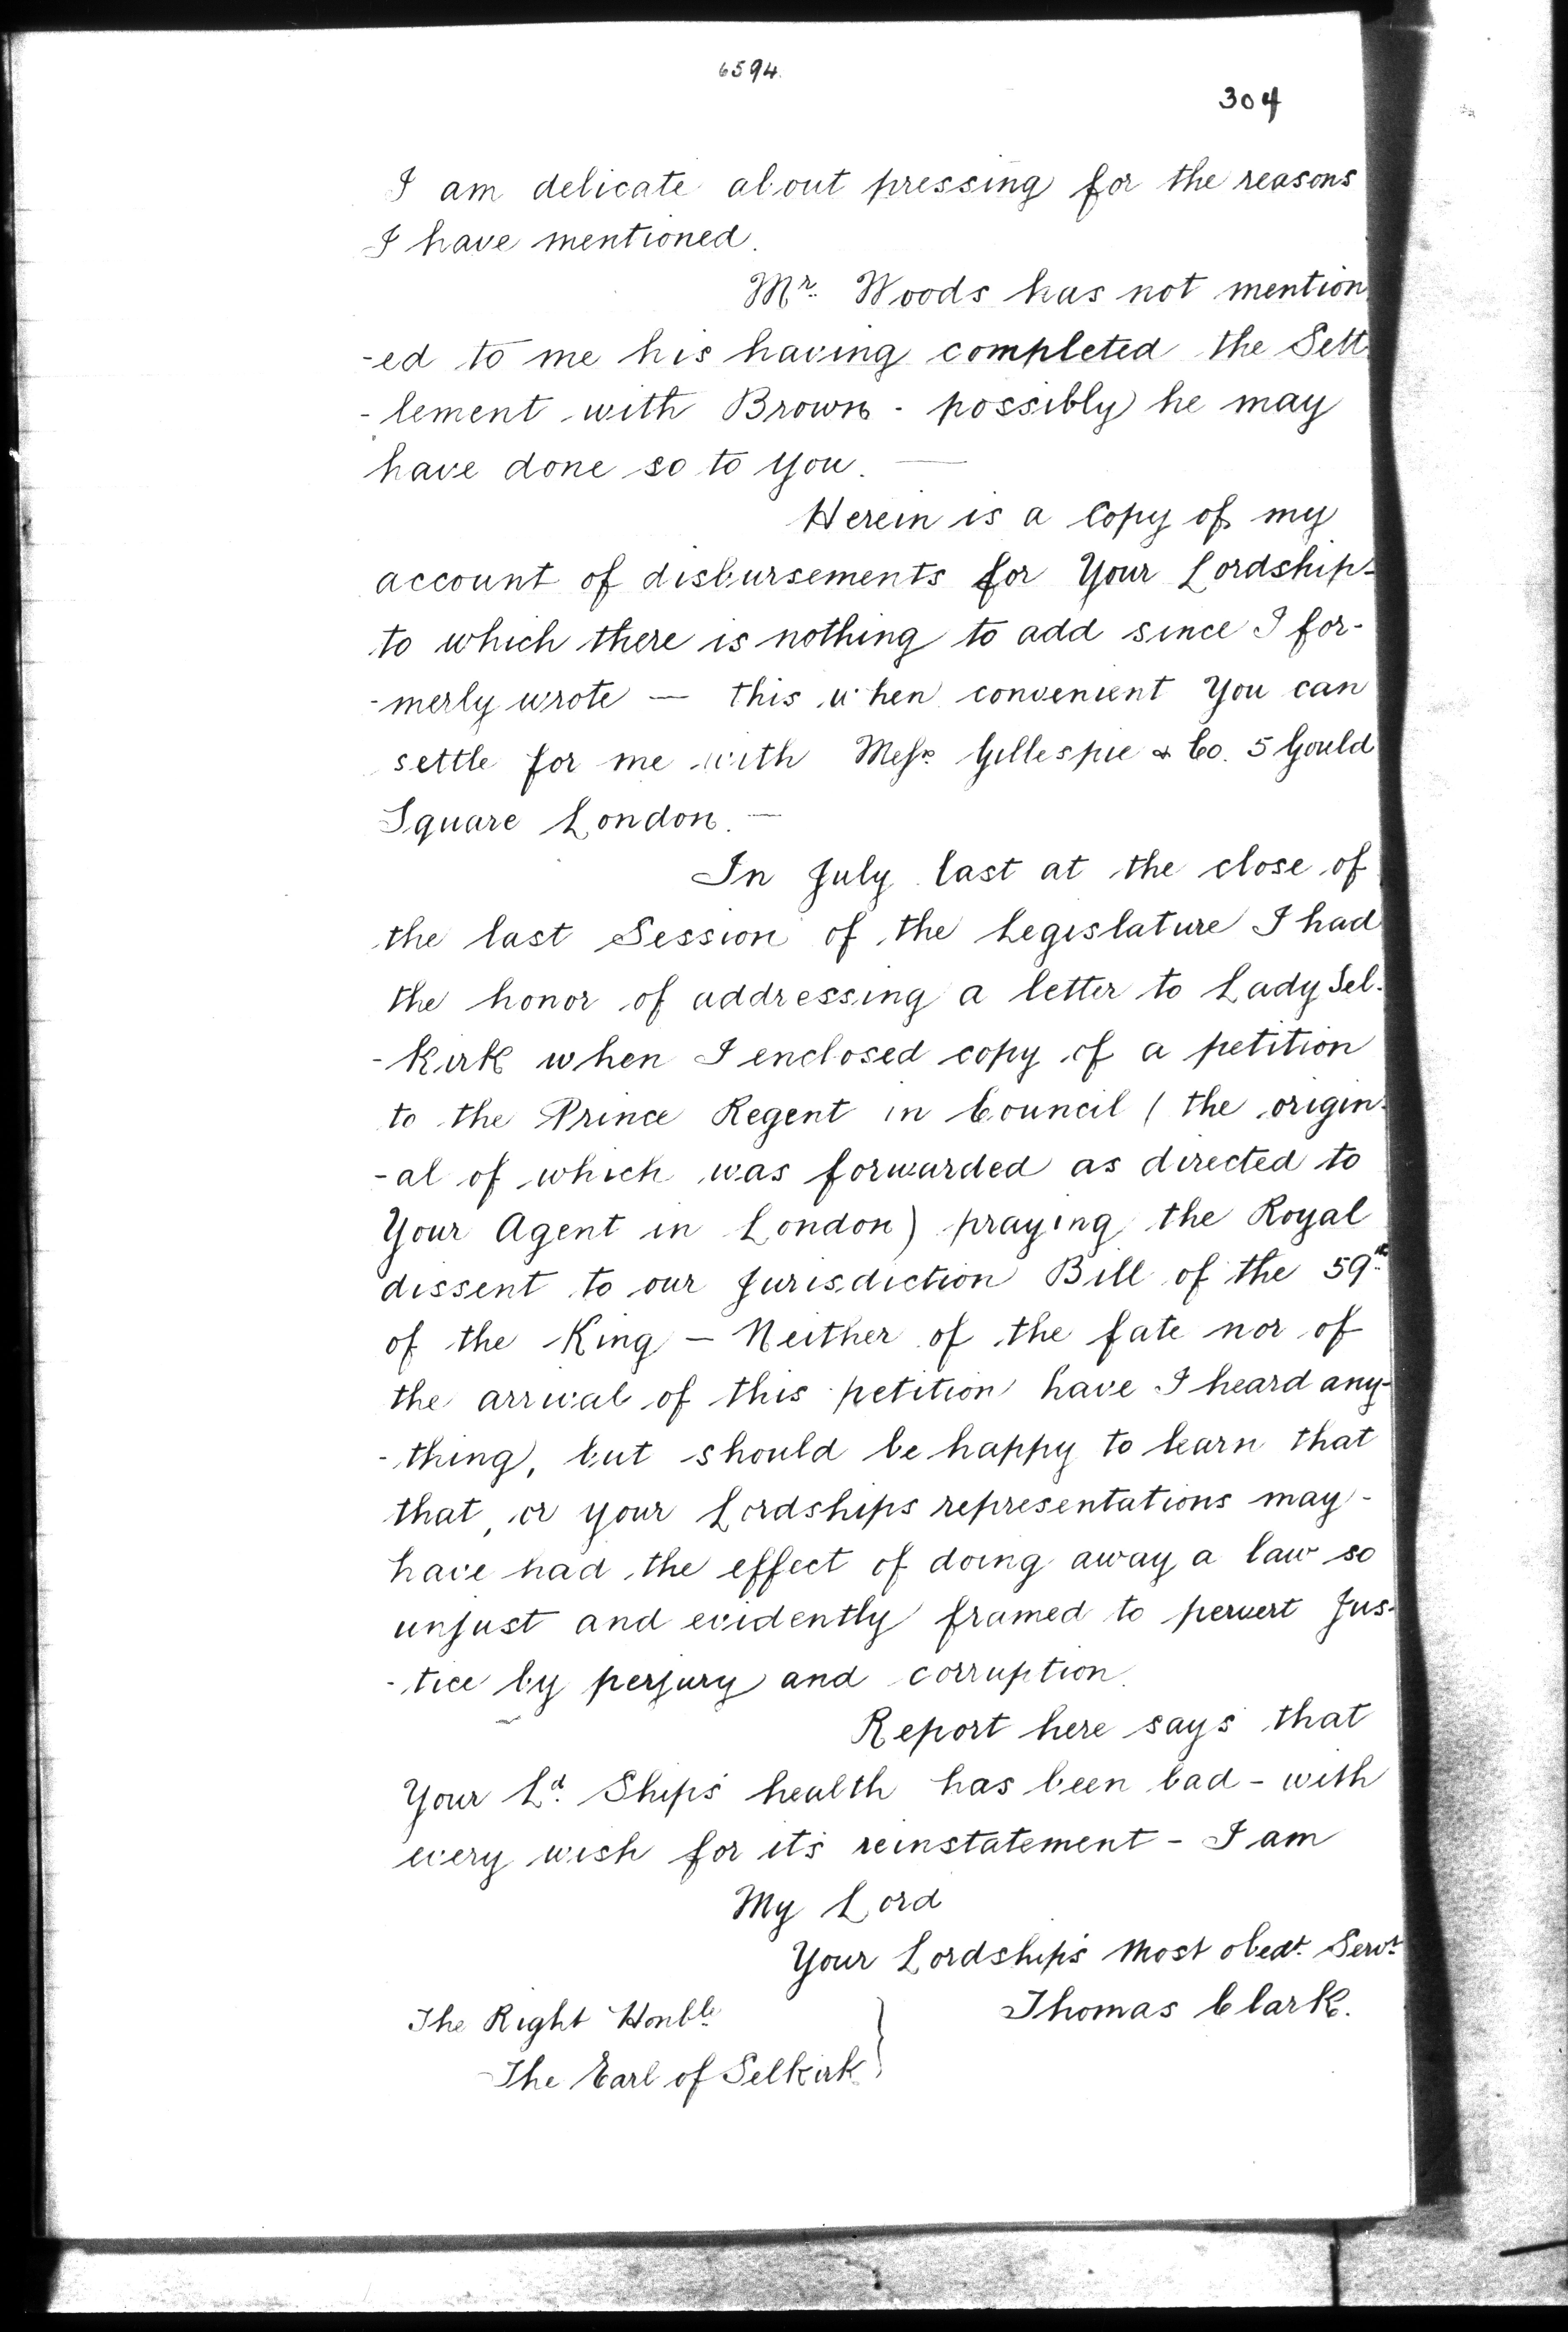 6594
304
I am delicate about pressing for the reasons
I have mentioned.
Mr. Woods has not mention
-ed to me his having completed the Sett
-lement with Brown - possibly he may
have done so to you. —
Herein is a Copy of my
account of disbursements for Your Lordship-
to which there is nothing to add since I for-
-merly wrote — this when convenient You can
settle for me with Messrs. Gillespie & Co. 5 Gould
Square London. —
In July last at the close of
the last Session of the Legislature I had
the honor of addressing a letter to Lady Sel-
-kirk when I enclosed copy of a petition
to the Prince Regent in Council ( the origin-
-al of which was forwarded as directed to
Your Agent in London) praying the Royal
dissent to our Jurisdiction Bill of the 59th
of the King — Neither of the fate nor of
the arrival of this petition have I heard any-
-thing, but should be happy to learn that
that, or your Lordships representations may-
have had the effect of doing away a law so
unjust and evidently framed to pervert Jus-
-tice by perjury and corruption.
Report here says that
Your Ld. Ships health has been bad - with
every wish for its reinstatement - I am
My Lord
Your Lordships Most obedt. Servt.
Thomas Clark.
The Right Honble
The Earl of Selkirk }